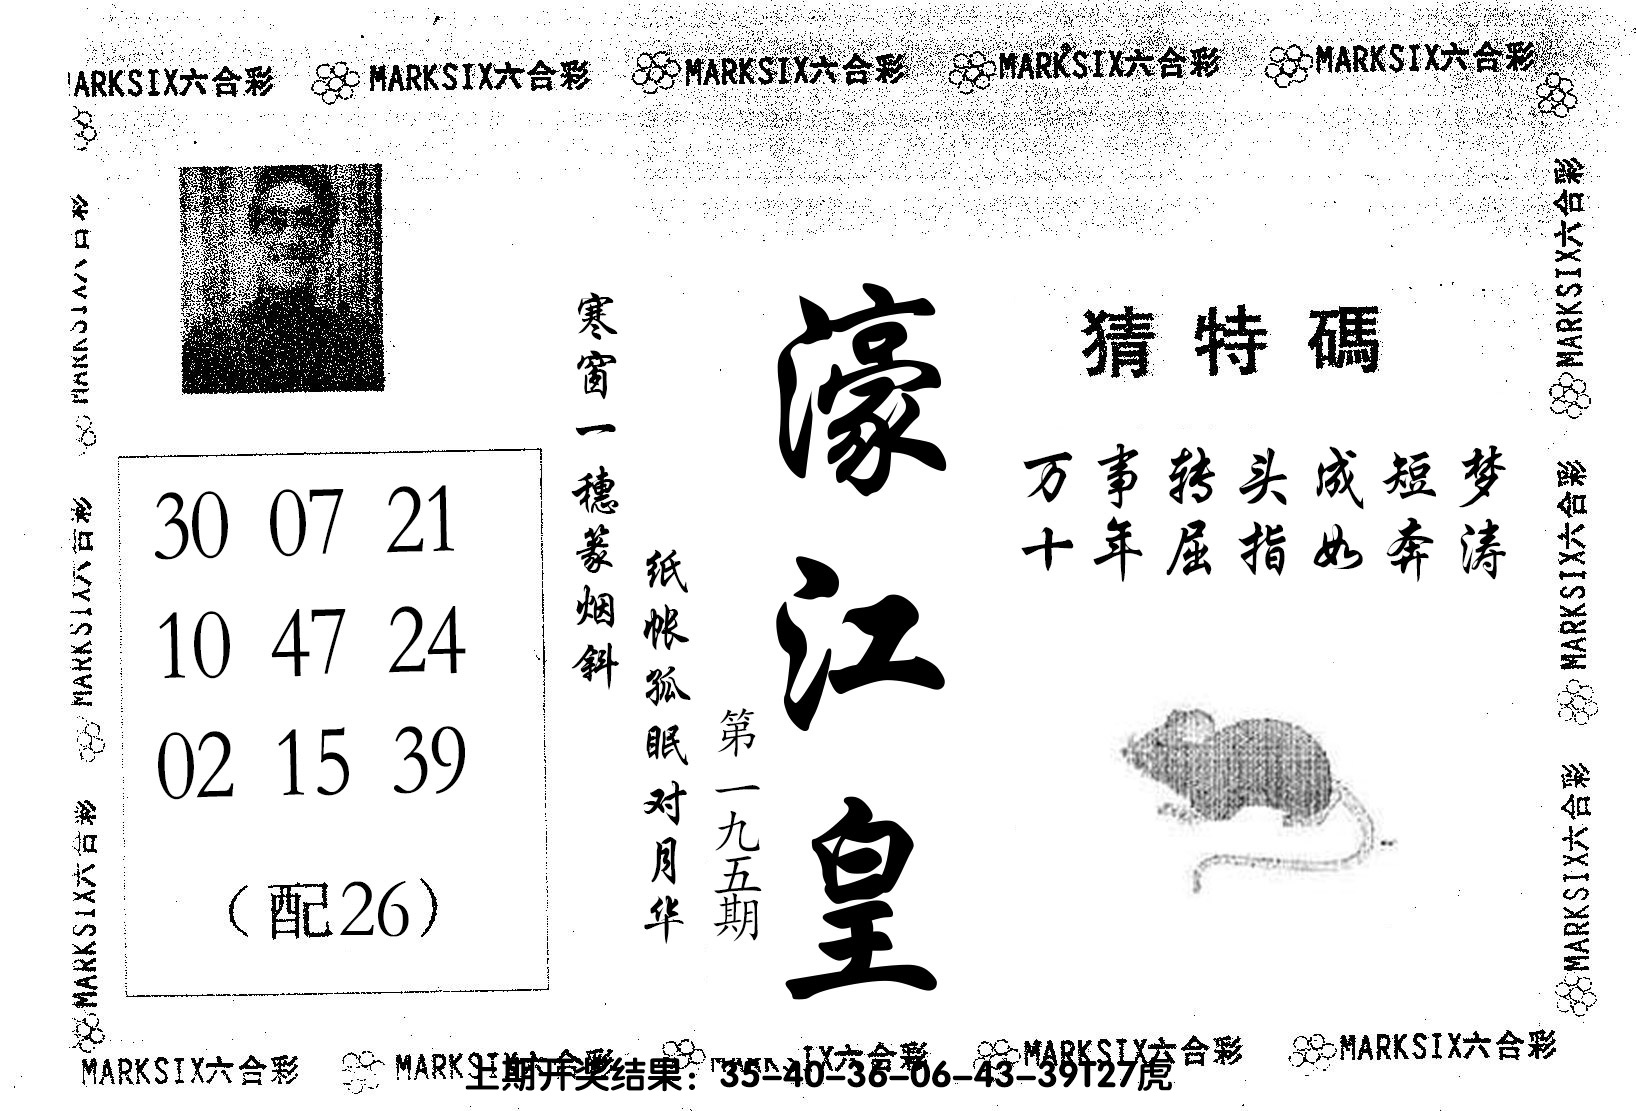 MARKSIX六合彩 MARKSIX六合彩 MARKSIX六合彩 MARKSIX六合彩
猜特碼
万事转头成短梦
十年屈指如奔涛
濠江皇
第一九五期
寒窗一穗篆烟斜
纸帐孤眠对月华
30 07 21
10 47 24
02 15 39
（配26）
MARKSIX六合彩
MARKSIX六合彩
MARKSIX六合彩
MARKSIX六合彩
MARKSIX六合彩
MARKSIX六合彩 MARKSIX六合彩 MARKSIX六合彩 MARKSIX六合彩
上期开奖结果：35-40-36-06-43-39T27虎